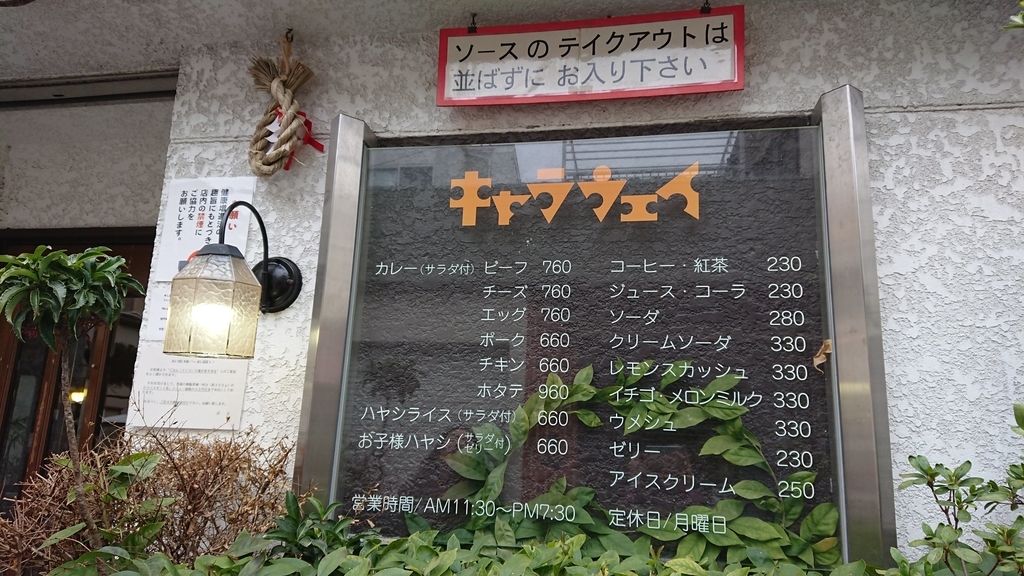 ソースの テイクアウトは
並ばずに お入り下さい
キャラウェイ
カレー(サラダ付) ビーフ 760
チーズ 760
エッグ 760
ポーク 660
チキン 660
ホタテ 960
ハヤシライス(サラダ付) 660
お子様ハヤシ(サラダ ゼリー付) 660
コーヒー・紅茶 230
ジュース・コーラ 230
ソーダ 280
クリームソーダ 330
レモンスカッシュ 330
イチゴ・メロンミルク 330
ウメシュ 330
ゼリー 230
アイスクリーム 250
営業時間/AM11:30〜PM7:30
定休日/月曜日
趣旨にもとづき
店内の禁煙に
ご協力を
お願いします。